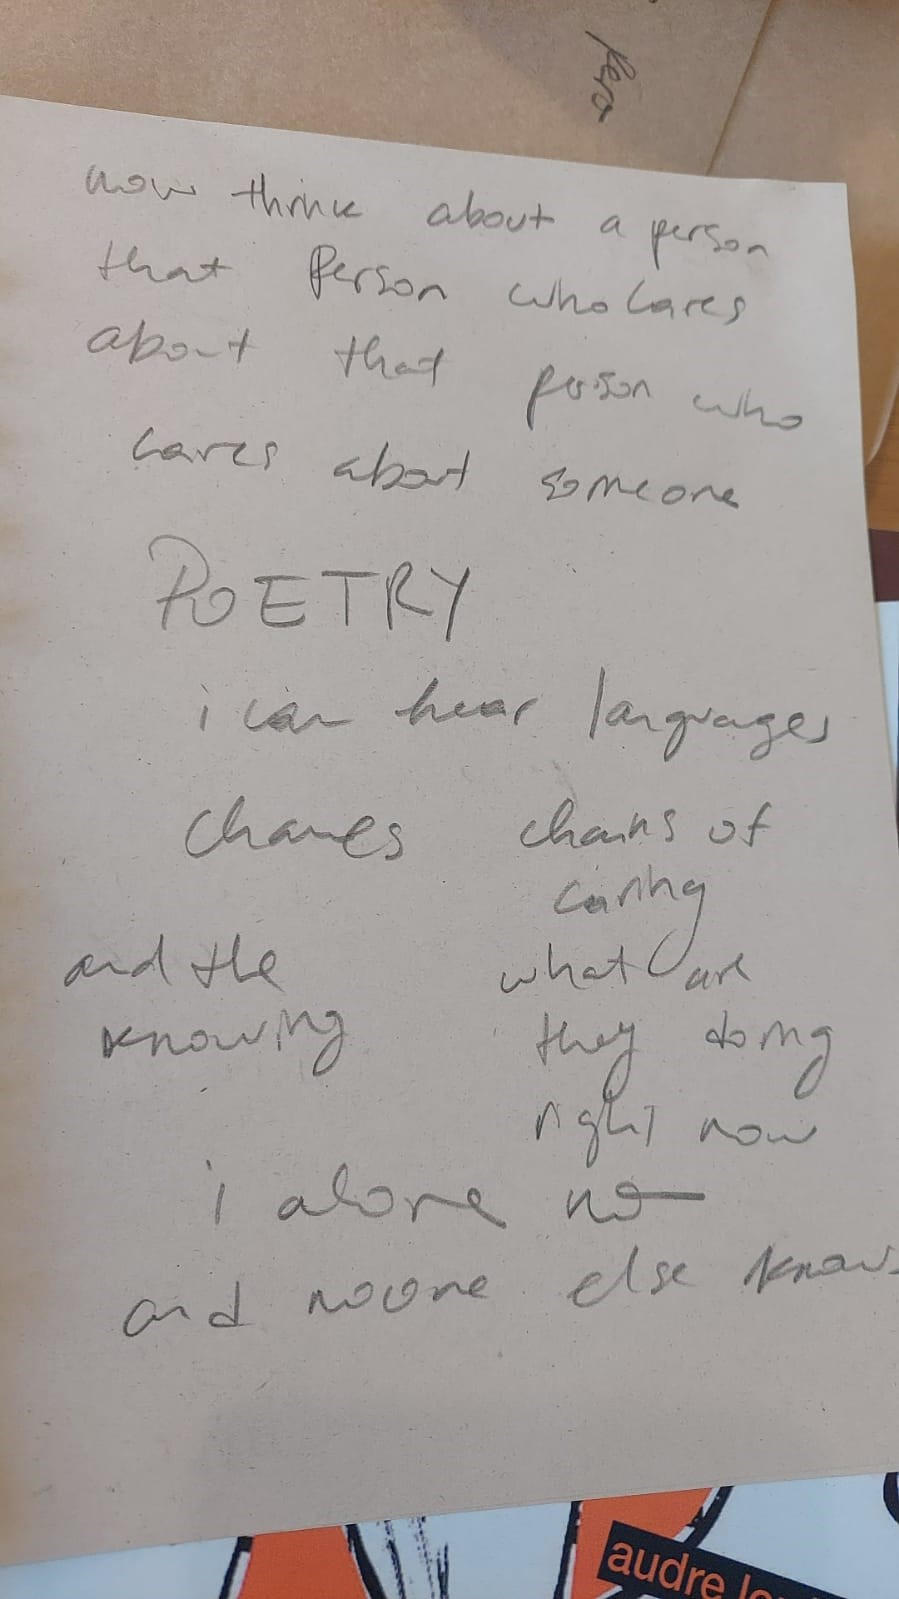 now think about a person
that Person who cares
about that person who
cares about someone
POETRY
i can hear languages
chains of
caring
and the
knowing
what are
they doing
right now
i alone
and noone else knows
audre